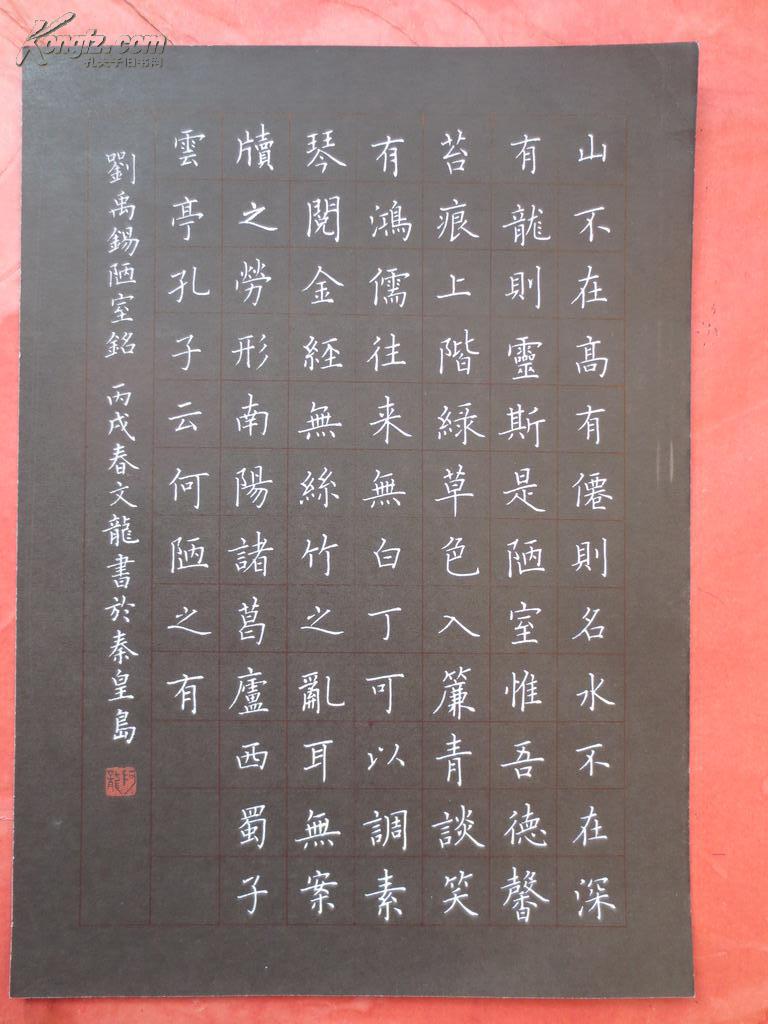 山不在髙有僊則名水不在深
有龍則靈斯是陋室惟吾德馨
苔痕上階緑草色入簾青談笑
有鴻儒往来無白丁可以調素
琴閱金經無絲竹之亂耳無案
牘之勞形南陽諸葛廬西蜀子
雲亭孔子云何陋之有
劉禹錫陋室銘 丙戌春文龍書於秦皇島
Kongfz.com
孔夫子旧书网